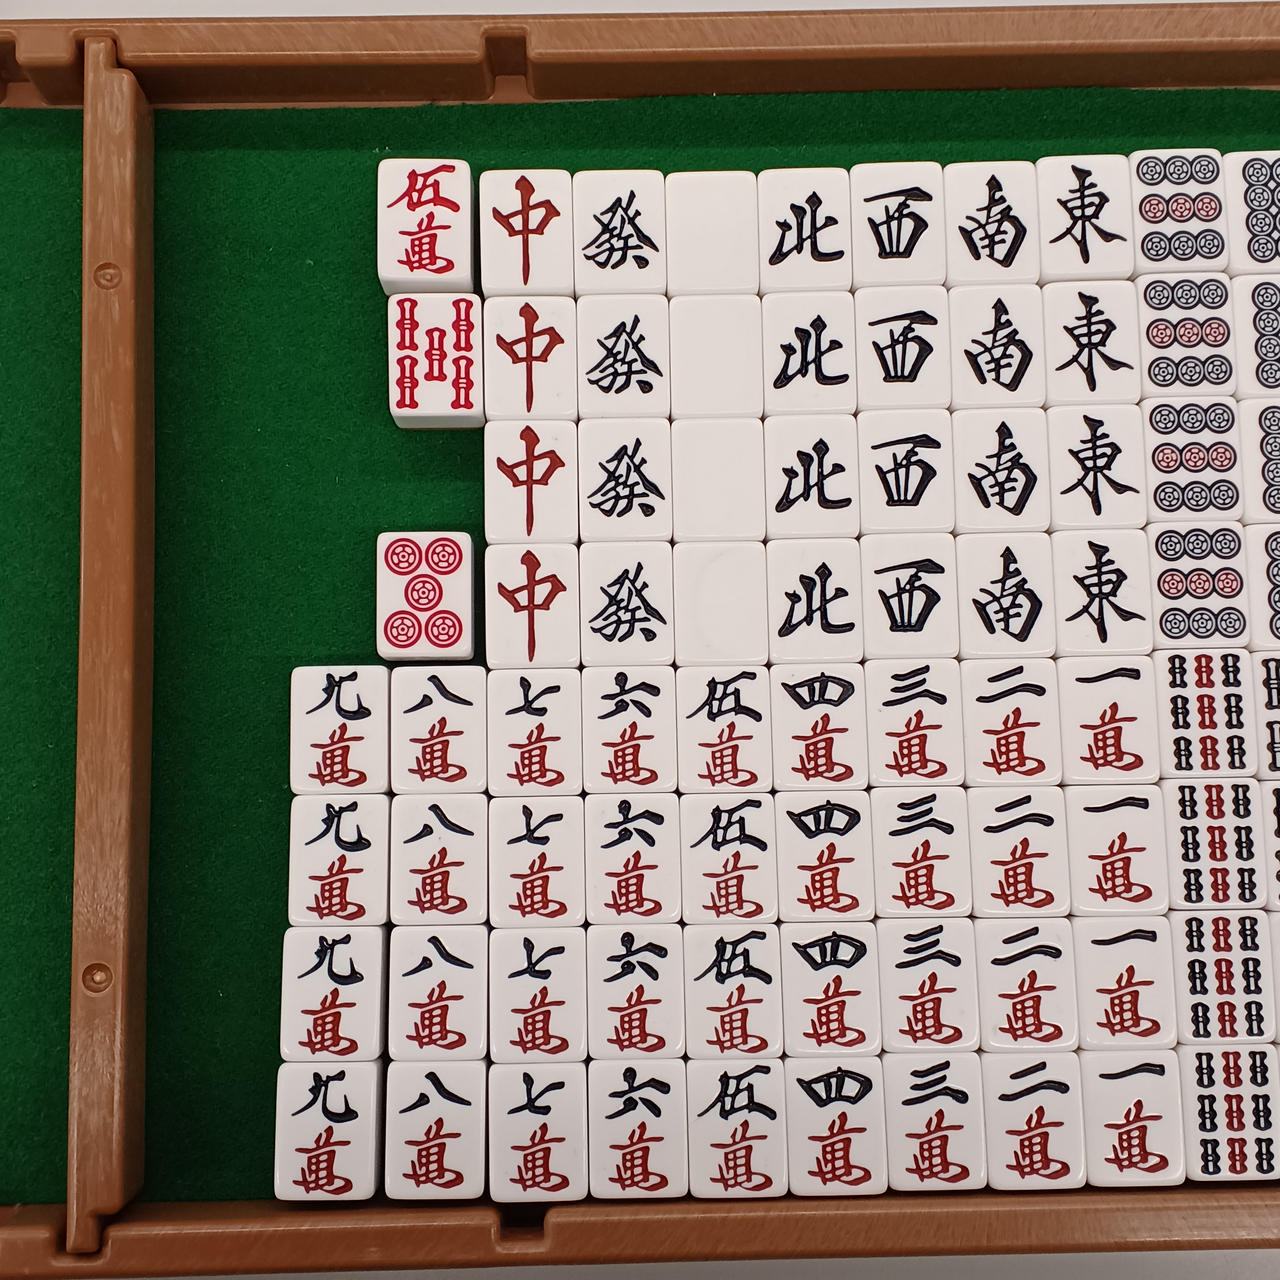 伍萬 中 發 北 西 南 東
中 發 北 西 南 東
中 發 北 西 南 東
中 發 北 西 南 東
九萬 八萬 七萬 六萬 伍萬 四萬 三萬 二萬 一萬
九萬 八萬 七萬 六萬 伍萬 四萬 三萬 二萬 一萬
九萬 八萬 七萬 六萬 伍萬 四萬 三萬 二萬 一萬
九萬 八萬 七萬 六萬 伍萬 四萬 三萬 二萬 一萬